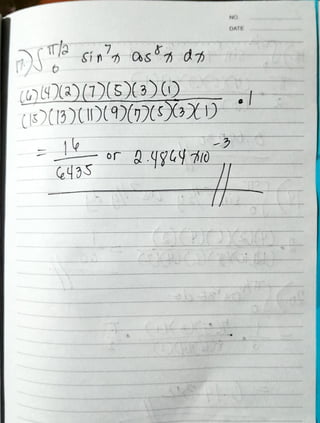 NO
DATE
17.) ∫₀^π/2 sin⁷x cos⁸x dx
(6)(4)(2)(7)(5)(3)(1)
(15)(13)(11)(9)(7)(5)(3)(1) • 1
= 16/6435 or 2.4864 x10⁻³